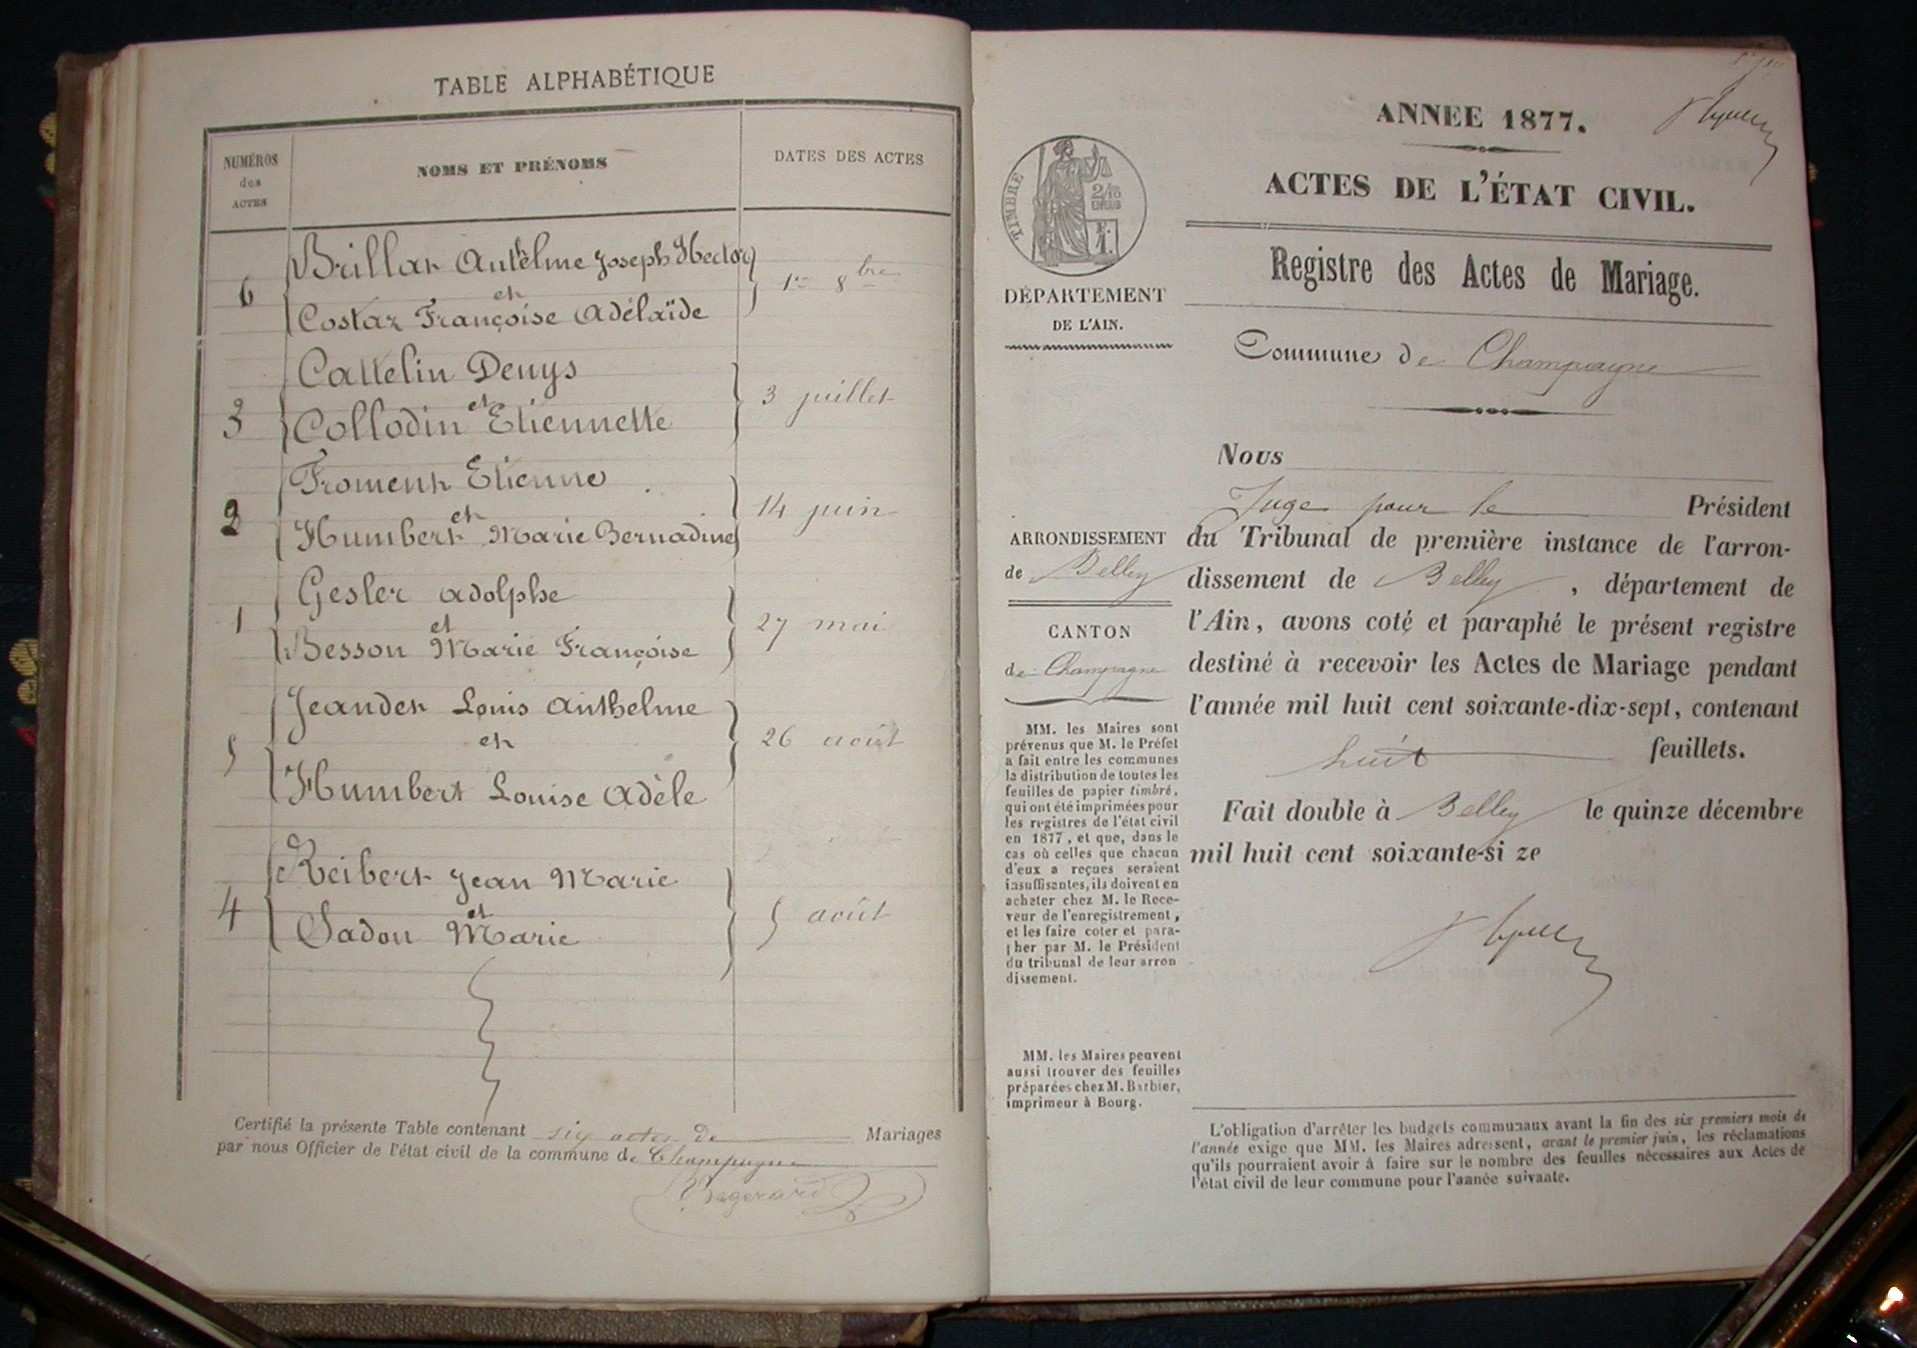 TABLE ALPHABÉTIQUE
NUMÉROS
des
ACTES
NOMS ET PRÉNOMS
DATES DES ACTES
Brillat Anthelme Joseph Hector
6 et 1er 8bre
Costaz Françoise Adélaïde
Cattelin Denys
et 3 juillet
3 Collodin Etiennette
Froment Etienne
2 et 14 juin
Humbert Marie Bernadine
Gesler Adolphe
1 et 27 mai
Besson Marie Françoise
Jeandet Louis Anthelme
5 et 26 août
Humbert Louise Adèle
Reibert Jean Marie
4 et 5 août
Sadon Marie
Certifié la présente Table contenant six actes de Mariages
par nous Officier de l'état civil de la commune de Champagne
ANNEE 1877.
ACTES DE L'ÉTAT CIVIL.
Registre des Actes de Mariage.
Commune de Champagne
TIMBRE
2/10
EN SUS
DÉPARTEMENT
DE L'AIN.
ARRONDISSEMENT
de Belley
CANTON
de Champagne
MM. les Maires sont
prévenus que M. le Préfet
a fait entre les communes
la distribution de toutes les
feuilles de papier timbré,
qui ont été imprimées pour
les registres de l'état civil
en 1877, et que, dans le
cas où celles que chacun
d'eux a reçues seraient
insuffisantes, ils doivent en
acheter chez M. le Rece-
veur de l'enregistrement,
et les faire coter et para-
pher par M. le Président
du tribunal de leur arron
dissement.
MM. les Maires peuvent
aussi trouver des feuilles
préparées chez M. Barbier,
imprimeur à Bourg.
Nous
Juge pour le Président
du Tribunal de première instance de l'arron-
dissement de Belley, département de
l'Ain, avons coté et paraphé le présent registre
destiné à recevoir les Actes de Mariage pendant
l'année mil huit cent soixante-dix-sept, contenant
huit feuillets.
Fait double à Belley le quinze décembre
mil huit cent soixante-si ze
L'obligation d'arrêter les budgets communaux avant la fin des six premiers mois de
l'année exige que MM. les Maires adressent, avant le premier juin, les réclamations
qu'ils pourraient avoir à faire sur le nombre des feuilles nécessaires aux Actes de
l'état civil de leur commune pour l'année suivante.